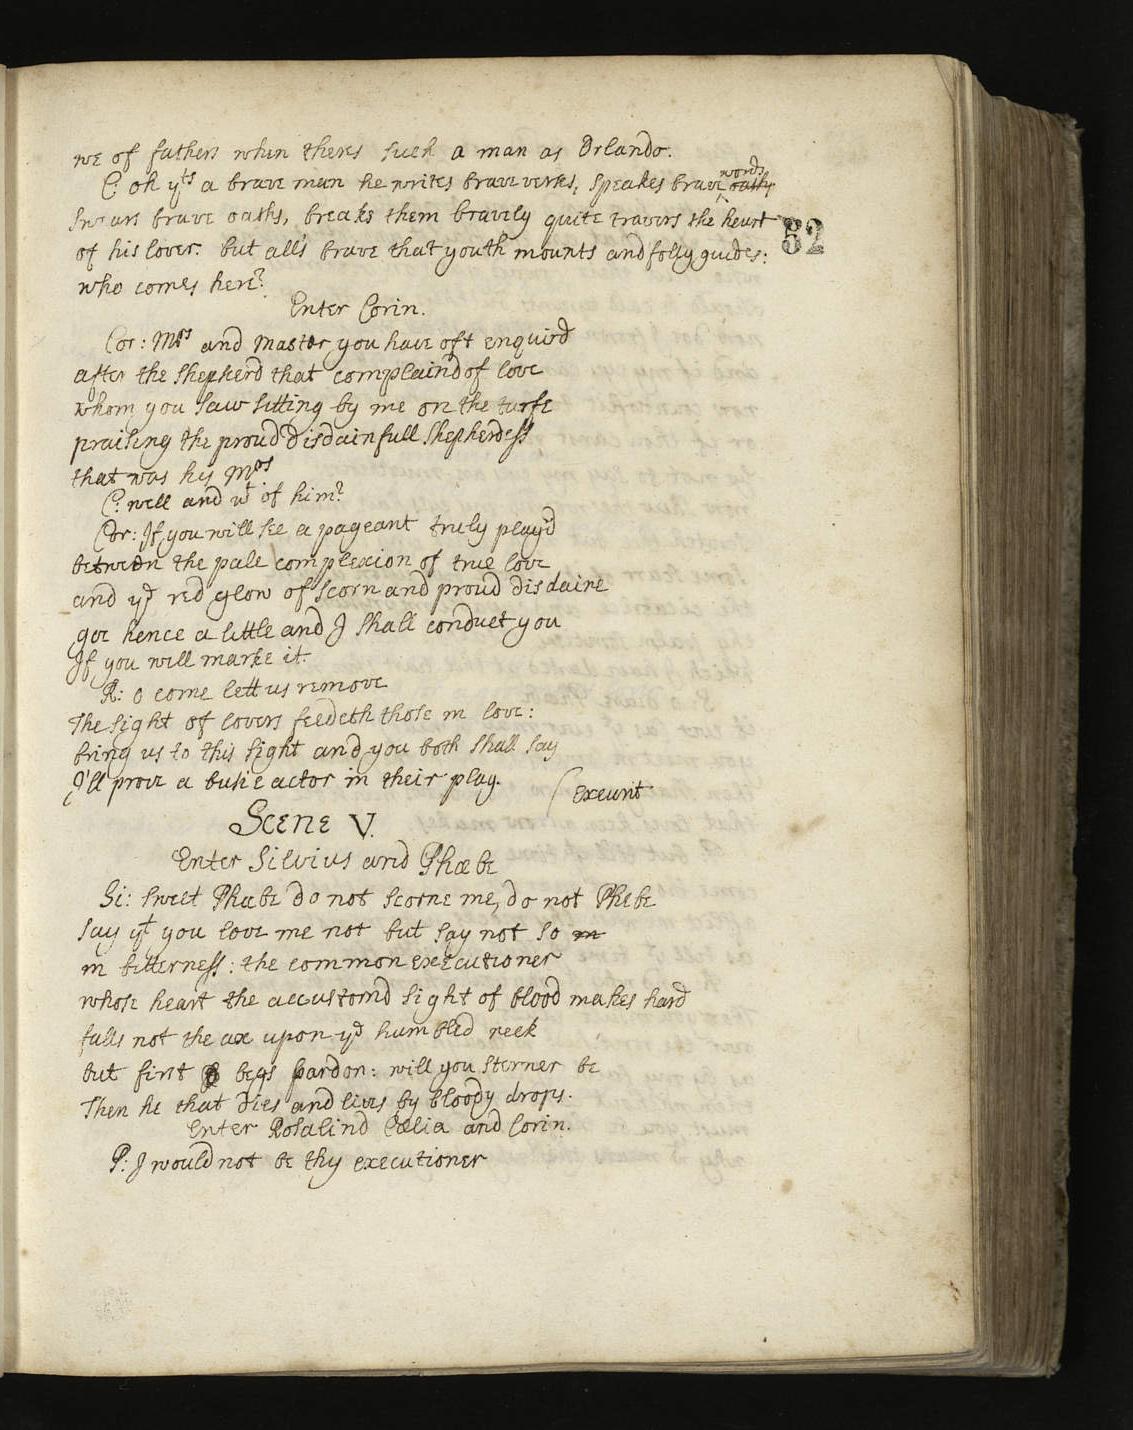 we of fathers when theres such a man as Orlando.
C: oh yts a brave man he writes brave verses, speakes brave words oaths
Swears brave oaths, breaks them bravely quite travers the heart
52
of his lover: but all's brave that youth mounts and folly guides:
who comes here?
Enter Corin.
Cor: Mrs and Master you have oft enquird
after the Shepherd that complaind of love
whom you saw sitting by me on the turfe
praising the proud disdainfull Shepherdess
that was his Mrs
C: well and wt of him?
Cor: If you will see a pageant truly play'd
between the pale complexion of true love
and ye red glow of scorn and proud disdaine
goe hence a little and I shall conduct you
If you will marke it.
R: o come lett us remove
The sight of lovers feedeth those in love:
bring us to this sight and you both shall say
I'll prove a busie actor in their play.
(Exeunt
Scene V.
Enter Silvius and Phœbe
Si: sweet Phœbe do not scorne me, do not Phebe
say yt you love me not but say not so in
in bitterness: the common executioner
whose heart the accustomd sight of blood makes hard
falls not the ax upon ye humbled neck
but first begs pardon: will you sterner be
Then he that dies and lives by bloody drops.
Enter Rosalind Cœlia and Corin.
P: I would not be thy executioner